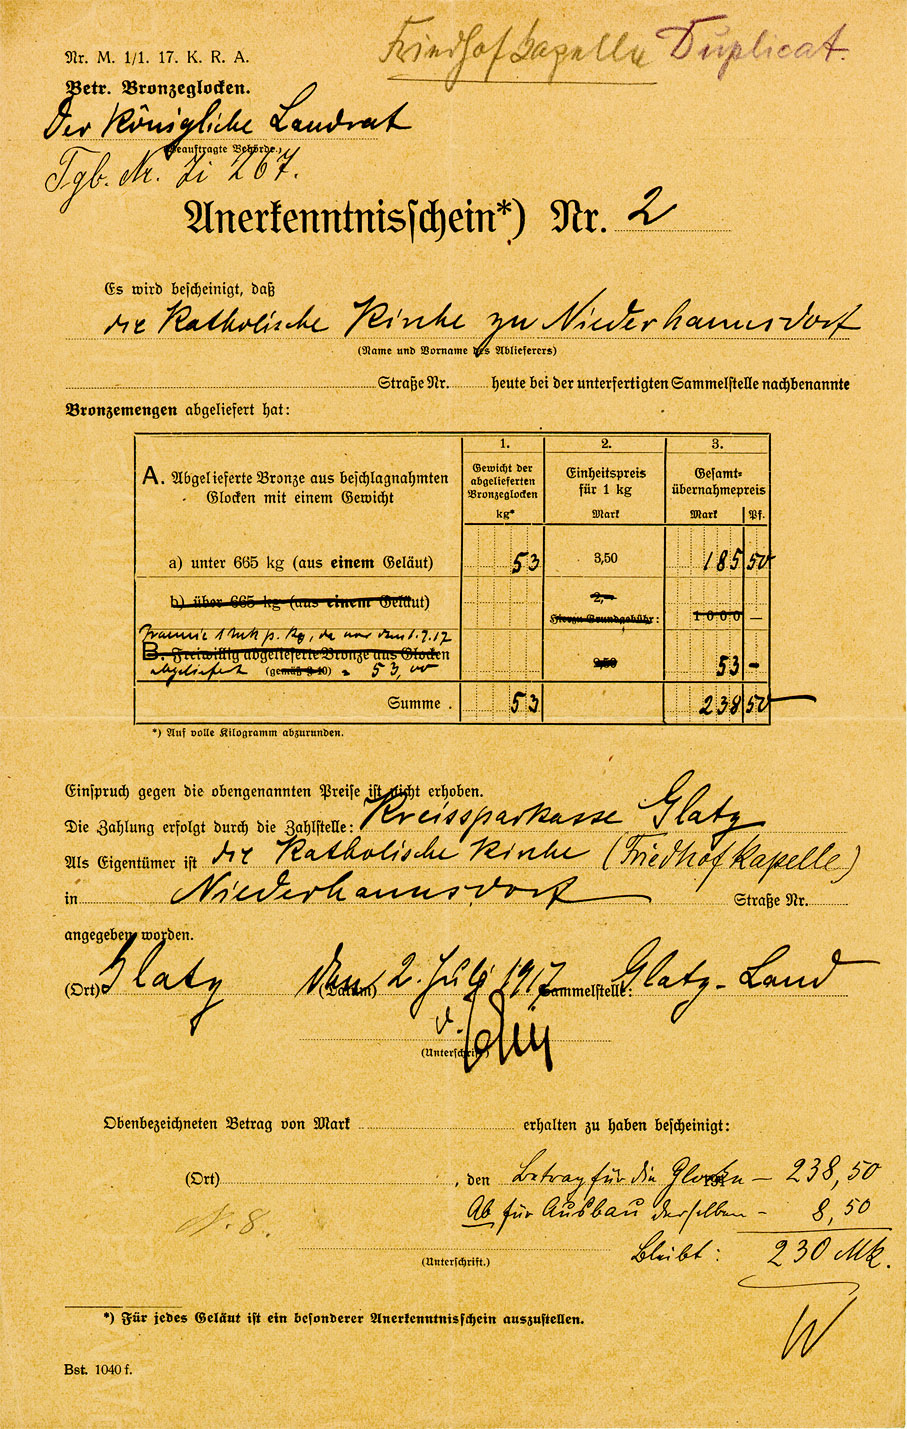 Friedhofkapelle Duplicat.
Nr. M. 1/1. 17. K. R. A.
Betr. Bronzeglocken.
Der Königliche Landrat
(Beauftragte Behörde.)
Tgb. Nr. Zi 267.
Anerkenntnisschein*) Nr. 2
Es wird bescheinigt, daß
die Katholische Kirche zu Niederhannsdorf
(Name und Vorname des Ablieferers)
Straße Nr. heute bei der unterfertigten Sammelstelle nachbenannte
Bronzemengen abgeliefert hat:
1. 2. 3.
A. Abgelieferte Bronze aus beschlagnahmten Glocken mit einem Gewicht
Gewicht der abgelieferten Bronzeglocken kg*
Einheitspreis für 1 kg Mark
Gesamt-übernahmepreis Mark Pf.
a) unter 665 kg (aus einem Geläut) 53 3,50 185 50
b) über 665 kg (aus einem Geläut) 2,–
Hierzu Grundgebühr: 1000 —
Praemie 1 Mk p. Kg, da vor dem 1.7.17
B. Freiwillig abgelieferte Bronze aus Glocken 2,50 53 –
abgeliefert (gemäß § 10) = 53,00
Summe . 53 238 50
*) Auf volle Kilogramm abzurunden.
Einspruch gegen die obengenannten Preise ist nicht erhoben.
Die Zahlung erfolgt durch die Zahlstelle: Kreissparkasse Glatz
Als Eigentümer ist die Katholische Kirche (Friedhofkapelle)
in Niederhannsdorf Straße Nr.
angegeben worden.
(Ort) Glatz (Datum) den 2. Juli 1917 Sammelstelle: Glatz-Land
(Unterschrift)
Obenbezeichneten Betrag von Mark erhalten zu haben bescheinigt:
(Ort) , den Betrag für die Glocken — 238,50
Ab für Ausbau derselben – 8,50
N. 8.
Bleibt: 230 Mk.
(Unterschrift.)
*) Für jedes Geläut ist ein besonderer Anerkenntnisschein auszustellen.
W
Bst. 1040 f.